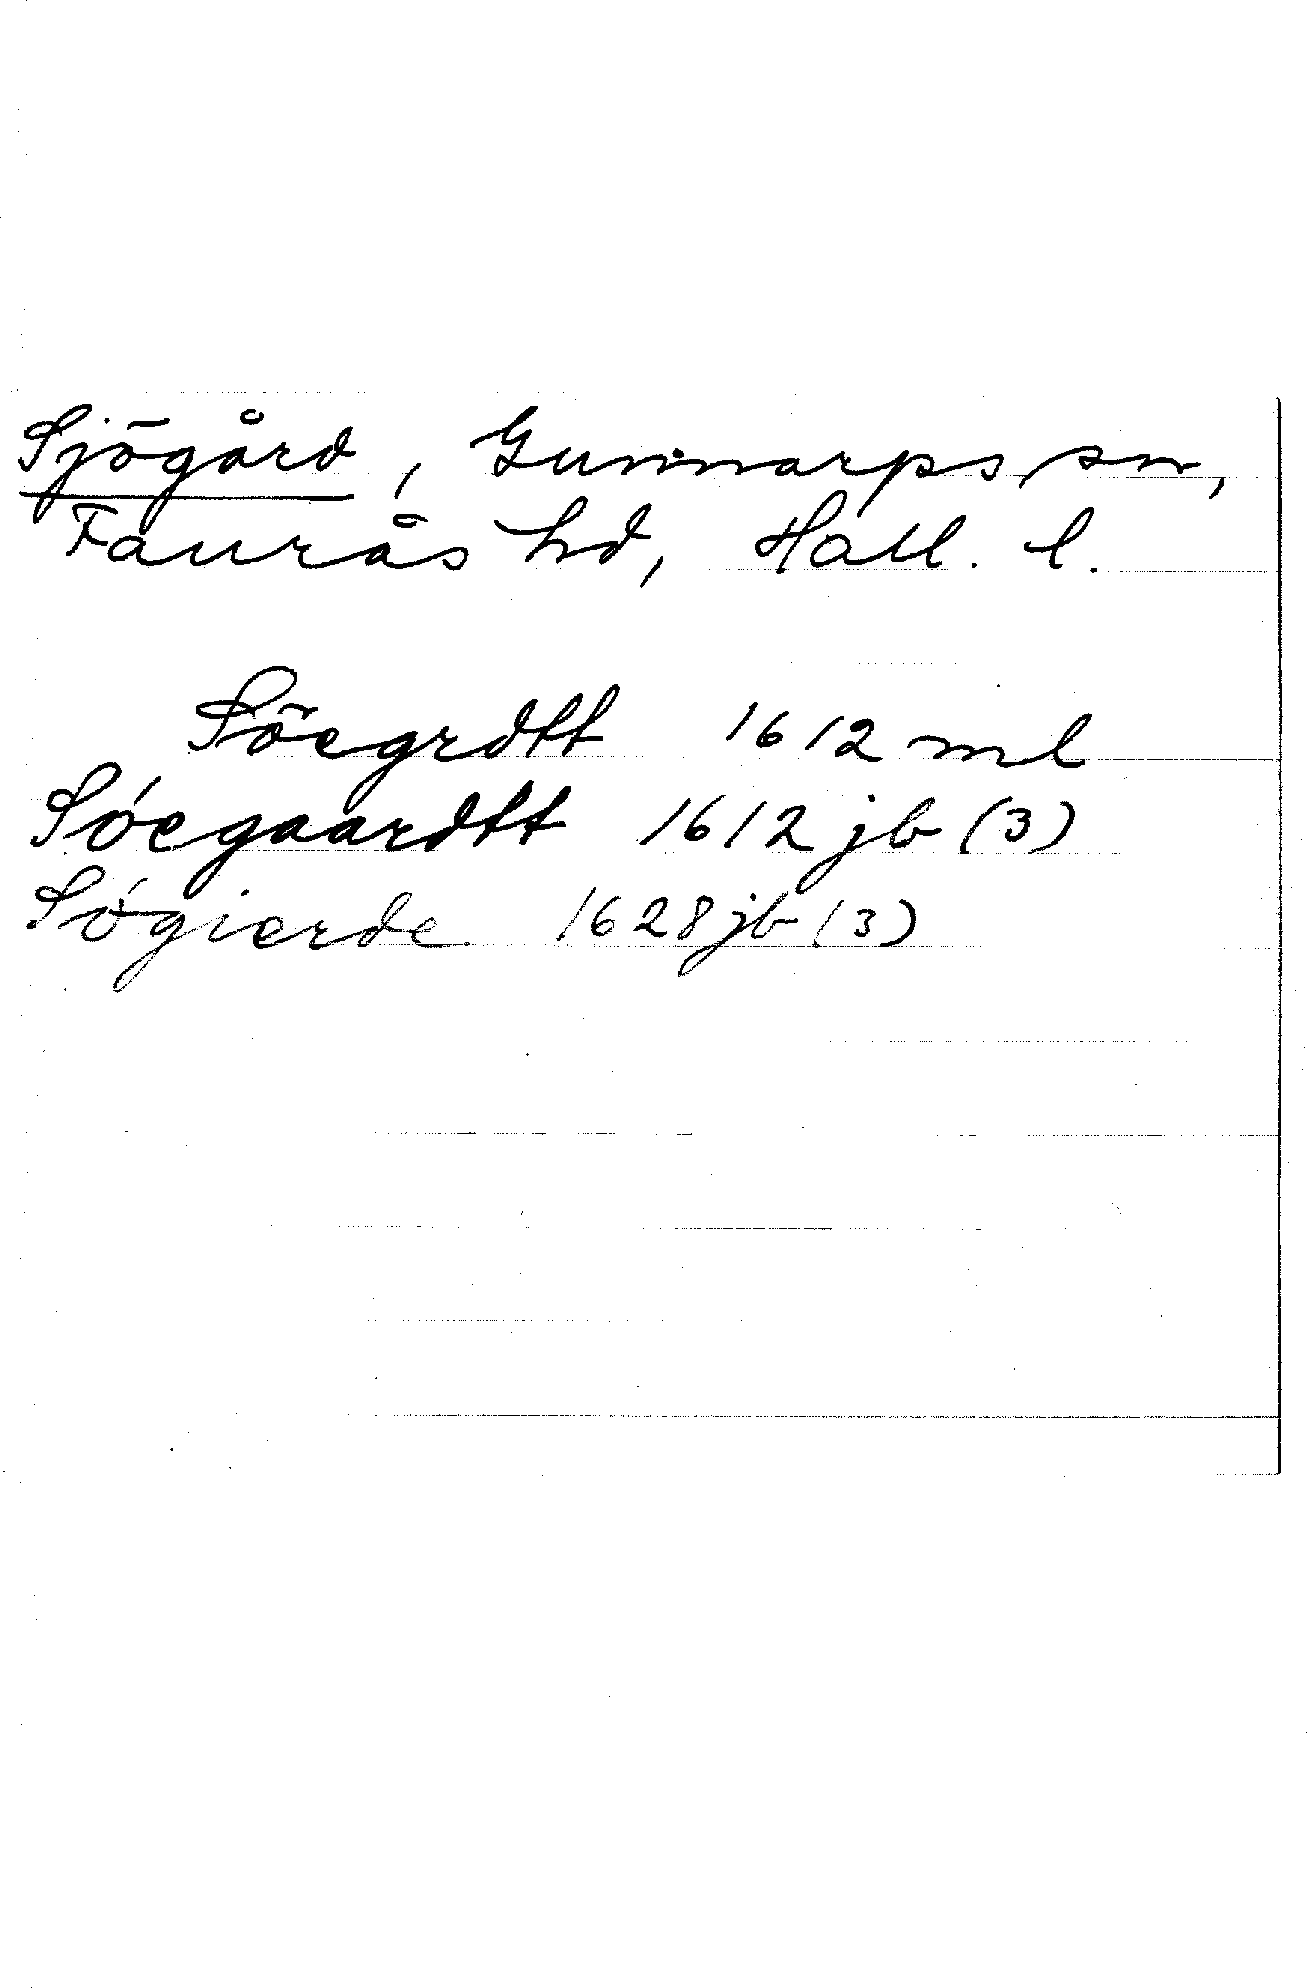 Sjögård, Gunnarps sn,
Faurås hd, Hall. l.
Söegrdtt 1612 ml
Sóegaardtt 1612 jb (3)
Sógierde 1628 jb (3)